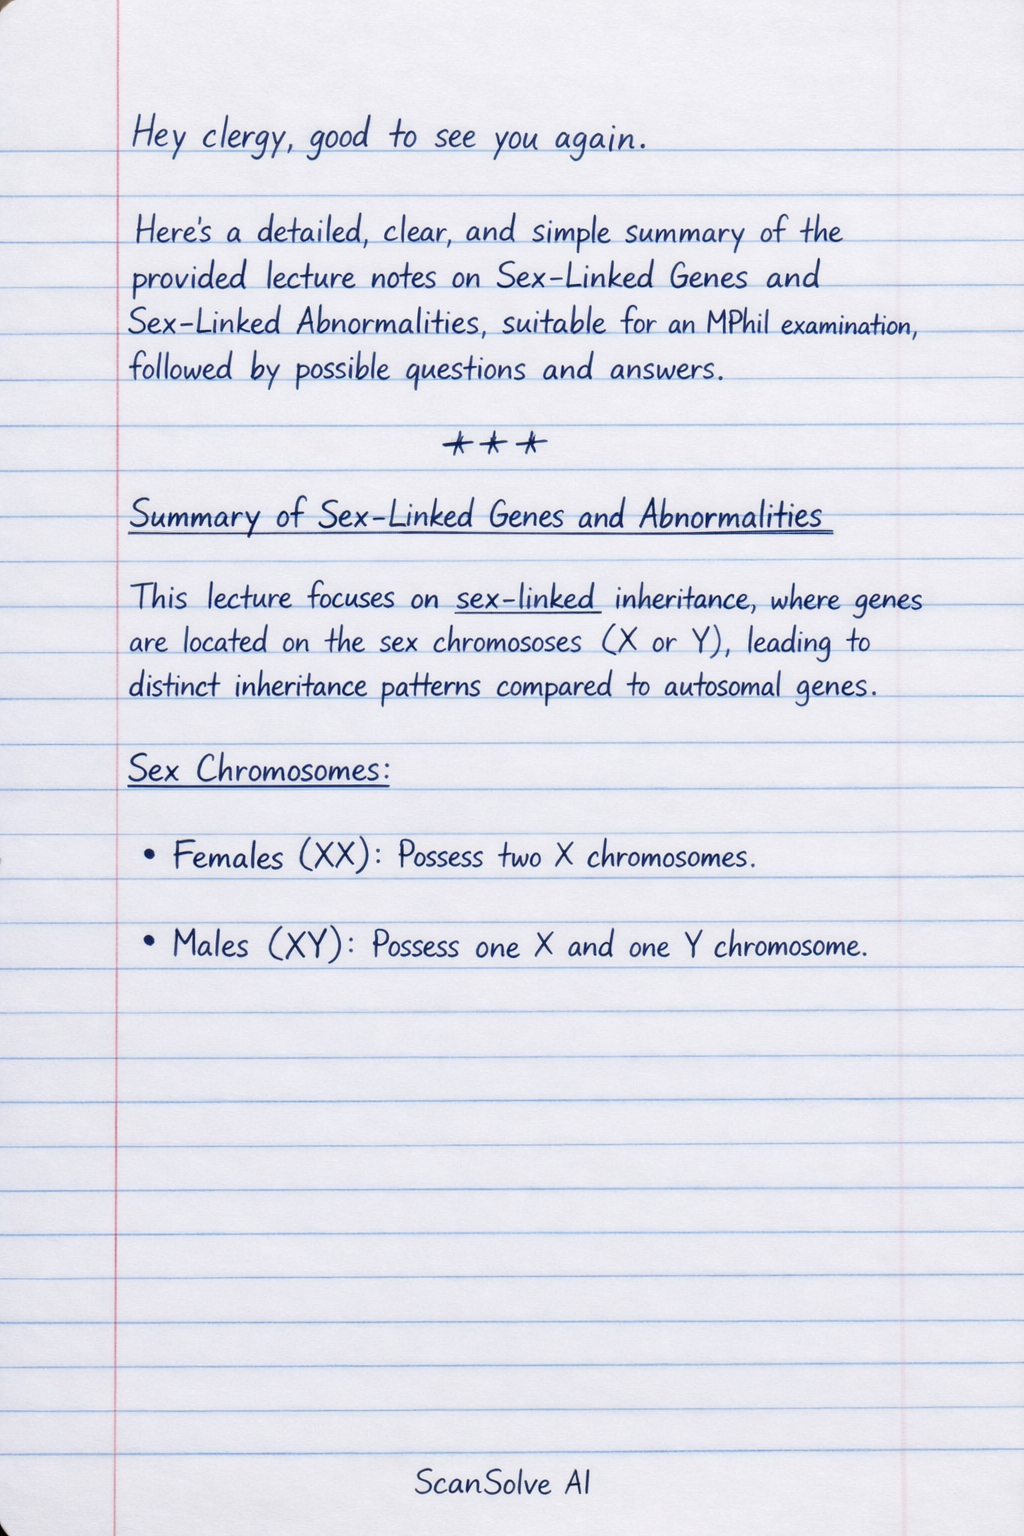 Hey clergy, good to see you again.
Here's a detailed, clear, and simple summary of the
provided lecture notes on Sex-Linked Genes and
Sex-Linked Abnormalities, suitable for an MPhil examination,
followed by possible questions and answers.
***
Summary of Sex-Linked Genes and Abnormalities
This lecture focuses on sex-linked inheritance, where genes
are located on the sex chromososes (X or Y), leading to
distinct inheritance patterns compared to autosomal genes.
Sex Chromosomes:
• Females (XX): Possess two X chromosomes.
• Males (XY): Possess one X and one Y chromosome.
ScanSolve AI